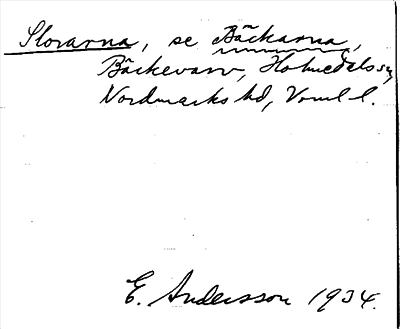 Slorarna, se Bäckarna,
Bäckevarv, Holmedals sn,
Nordmarks hd, Vrml. l.
E. Andersson 1934.